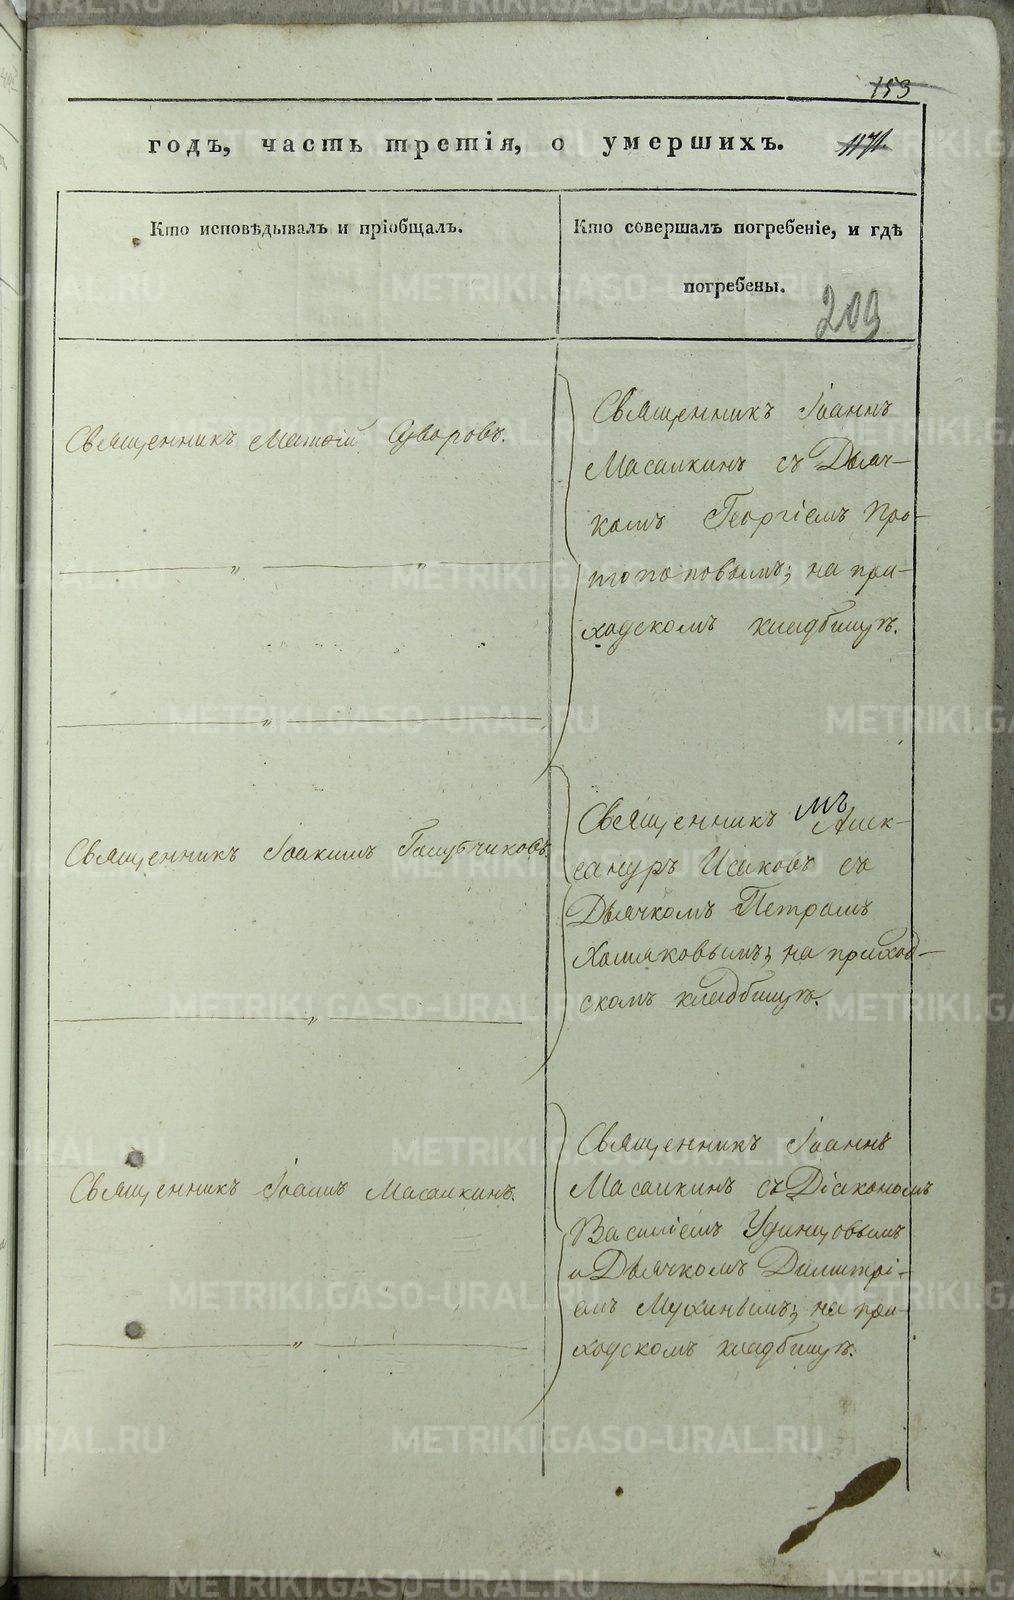 153
годъ, часть третія, о умершихъ.
1171.
Кто исповѣдывалъ и пріобщалъ.
Кто совершалъ погребеніе, и гдѣ
погребены.
209
Священникъ Матѳій Суворовъ.
Священникъ Іоаннъ
Масалкинъ съ Дьяч-
комъ Георгіемъ Про-
топоповымъ; на при-
ходскомъ кладбищѣ.
Священникъ Іоакимъ Голубчиковъ.
Священникъ мъ Алек-
сандръ Исаковъ съ
Дьячкомъ Петромъ
Хомяковымъ; на приход-
скомъ кладбищѣ.
Священникъ Іоаннъ Масалкинъ.
Священникъ Іоаннъ
Масалкинъ съ Діакономъ
Василіемъ Удинцовымъ
и Дьячкомъ Димитрі-
емъ Мухинымъ; на при-
ходскомъ кладбищѣ.
METRIKI.GASO-URAL.RU